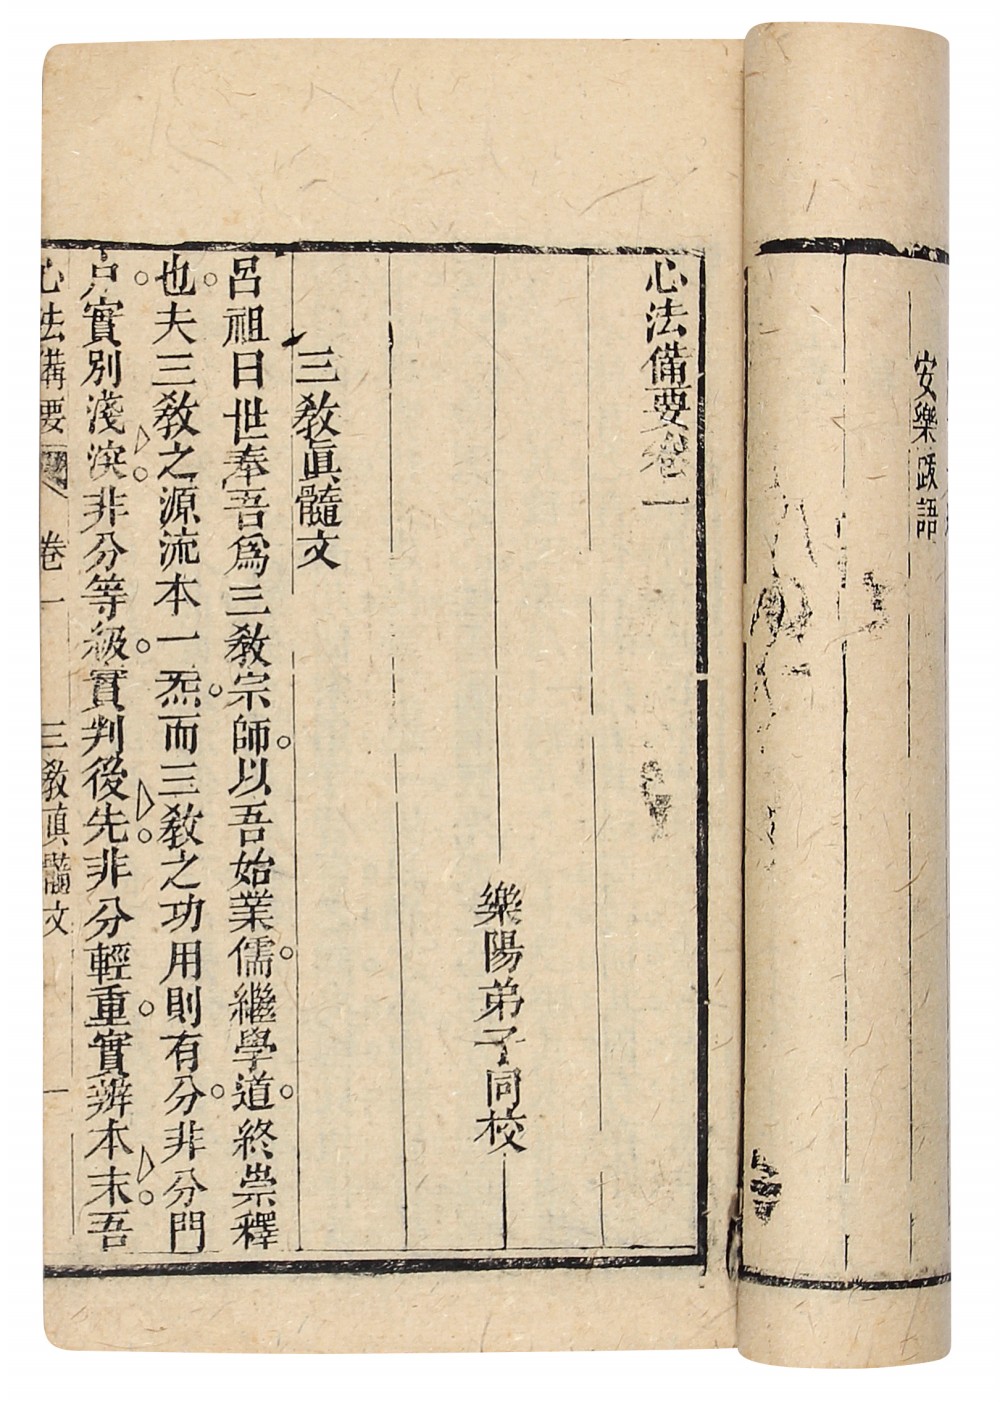 安樂跋語
心法備要卷一
樂陽弟子同校
三教眞髓文
呂祖曰世奉吾爲三教宗師。以吾始業儒。繼學道。終崇釋
也。夫三教之源流本一炁。而三教之功用則有分。非分門
戶。實別淺深。非分等級。實判後先。非分輕重。實辨本末。吾
心法備要 卷一 三教眞髓文 一